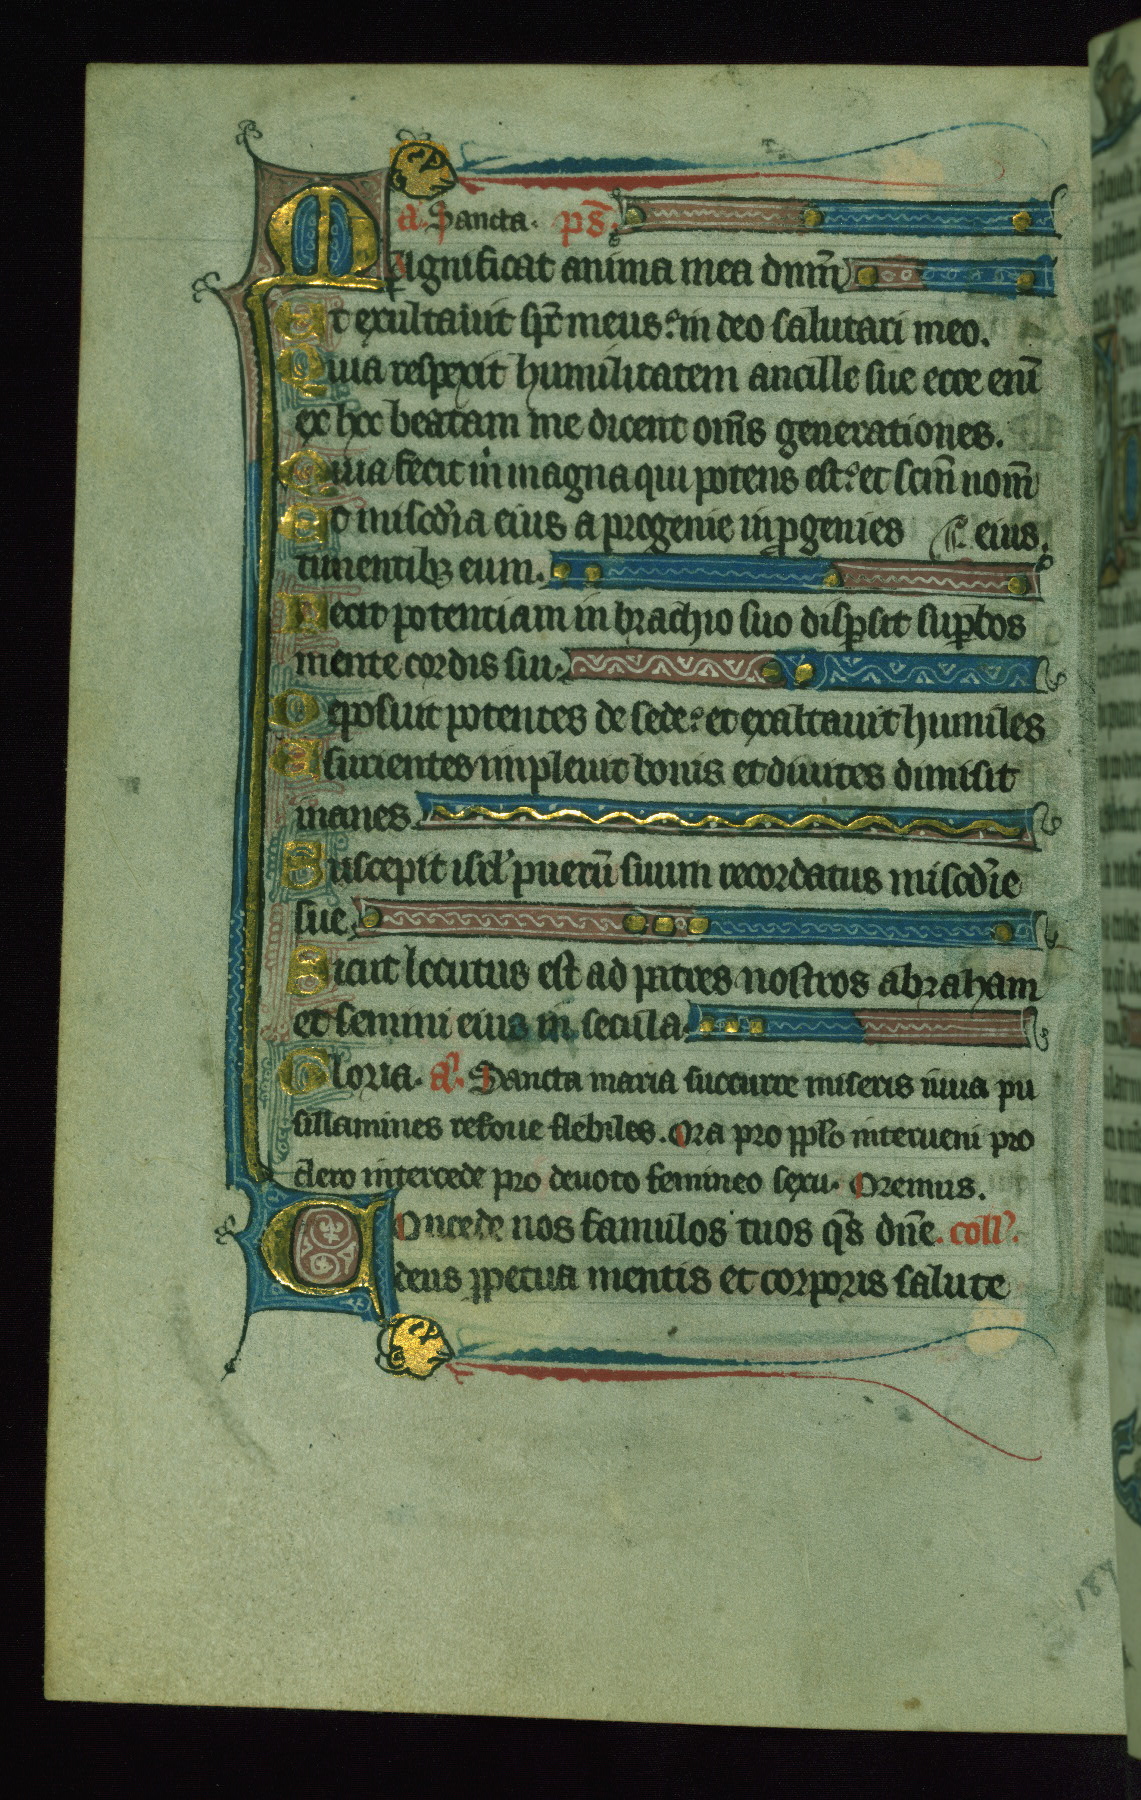 a. Sancta. ps̄.
Magnificat anima mea dnm̄
Et exultauit sp̄c meus: in deo salutari meo.
Quia respexit humilitatem ancille sue ecce enī
ex hoc beatam me dicent om̄s generationes.
Quia fecit m̍ magna qui potens est: et scm̄ nom̄
Et mis̄cdia eius a progenie in ꝓgenies eius.
timentibꝫ eum.
Fecit potentiam in brachio suo dispsit supbos
mente cordis sui.
Deposuit potentes de sede: et exaltauit humiles
Esurientes impleuit bonis et diuites dimisit
inanes
Suscepit isrl̄ puerū suum recordatus mis̄cdie
sue.
Sicut locutus est ad patres nostros abraham
et semini eius in secula.
Gloria. añ. Sancta maria succurre miseris iuua pu
sillamines refoue flebiles. Ora pro pplo interueni pro
clero intercede pro deuoto femineo sexu. Oremus.
Concede nos famulos tuos qs̄ dn̄e. coll̄.
deus ꝑpetua mentis et corporis salute
187